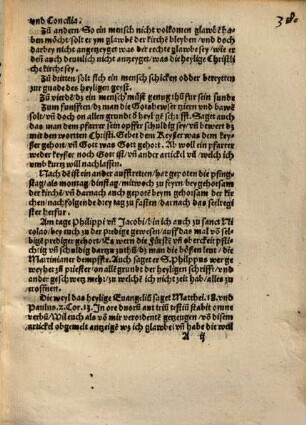 38.
vnd Concilia.
Zů andern So ein mensch nit volkomen glawbē haben möcht solt er ym glawbē der kirchē bleyben / vnd doch
darbey nit angezeyget was der rechte glawb sey / wie er
deñ auch deutlich nicht anzeyget / was die heylige Christliche kirche sey.
Zů dritten solt sich ein mensch schicken odder bereytten
zur gnade des heyligen geyst.
Zů vierdē dz ein mensch můst genug thů fur sein sunde
Zum funfften / dz man die Gotshewser zieren vnd bawē
solt / vñ doch on allen grund d heylgē schrifft. Saget auch
das man dem pfarrer sein opffer schuldig sey / vñ das bewert
mit den wortten Christi. Gebet dem Keyser was dem keyser
gehort / vñ Gott was Gott gehort. Ab woll ein pfarrer
weder keyser noch Gott ist / vñ ander artickel vñ / welch ich
vmb kurtz will nachlassen.
Nach dē ist ein ander aufftretten / hat gepoten die pfingstag /
als montag / dinstag / mitwoch zu feyrn bey gehorsam
der kirchē / vñ darnach auch gepotē bey gehorsame der kirchen /
nachfolgende drey tag zu fasten / darnach das selbig ist er hafur.
Am tage Philippi vñ Jacobi / bin ich auch zu sanct Nicolao /
bey euch zu der predige gewesen / auff das mal vō selbigē
prediger gehort / Es weren die Fürstē vñ oberkeit pflichtig
vñ schuldig dartzu zuthů / dz man die bōßen lent / die
Martinianer dempffte. Auch saget er S. Philippus wer geweyhet
zů priester / on allē grundt der heyligen schrifft / vnd ander
geschwetz mehr / zu welcher zeyt ich nicht hab / alles zu
eroffnen.
Die weyl das heylige Euangeliū saget Matthei. 18. vnd
Paulus. 2. Cor. 13. In ore duorū aut triū testiū stabit omne
verbū / Wil euch als vō mir verordente getzeugen / vō disem
artickel obgemelt antzeigē wz ich glawbe / vñ habe die weil
A ij